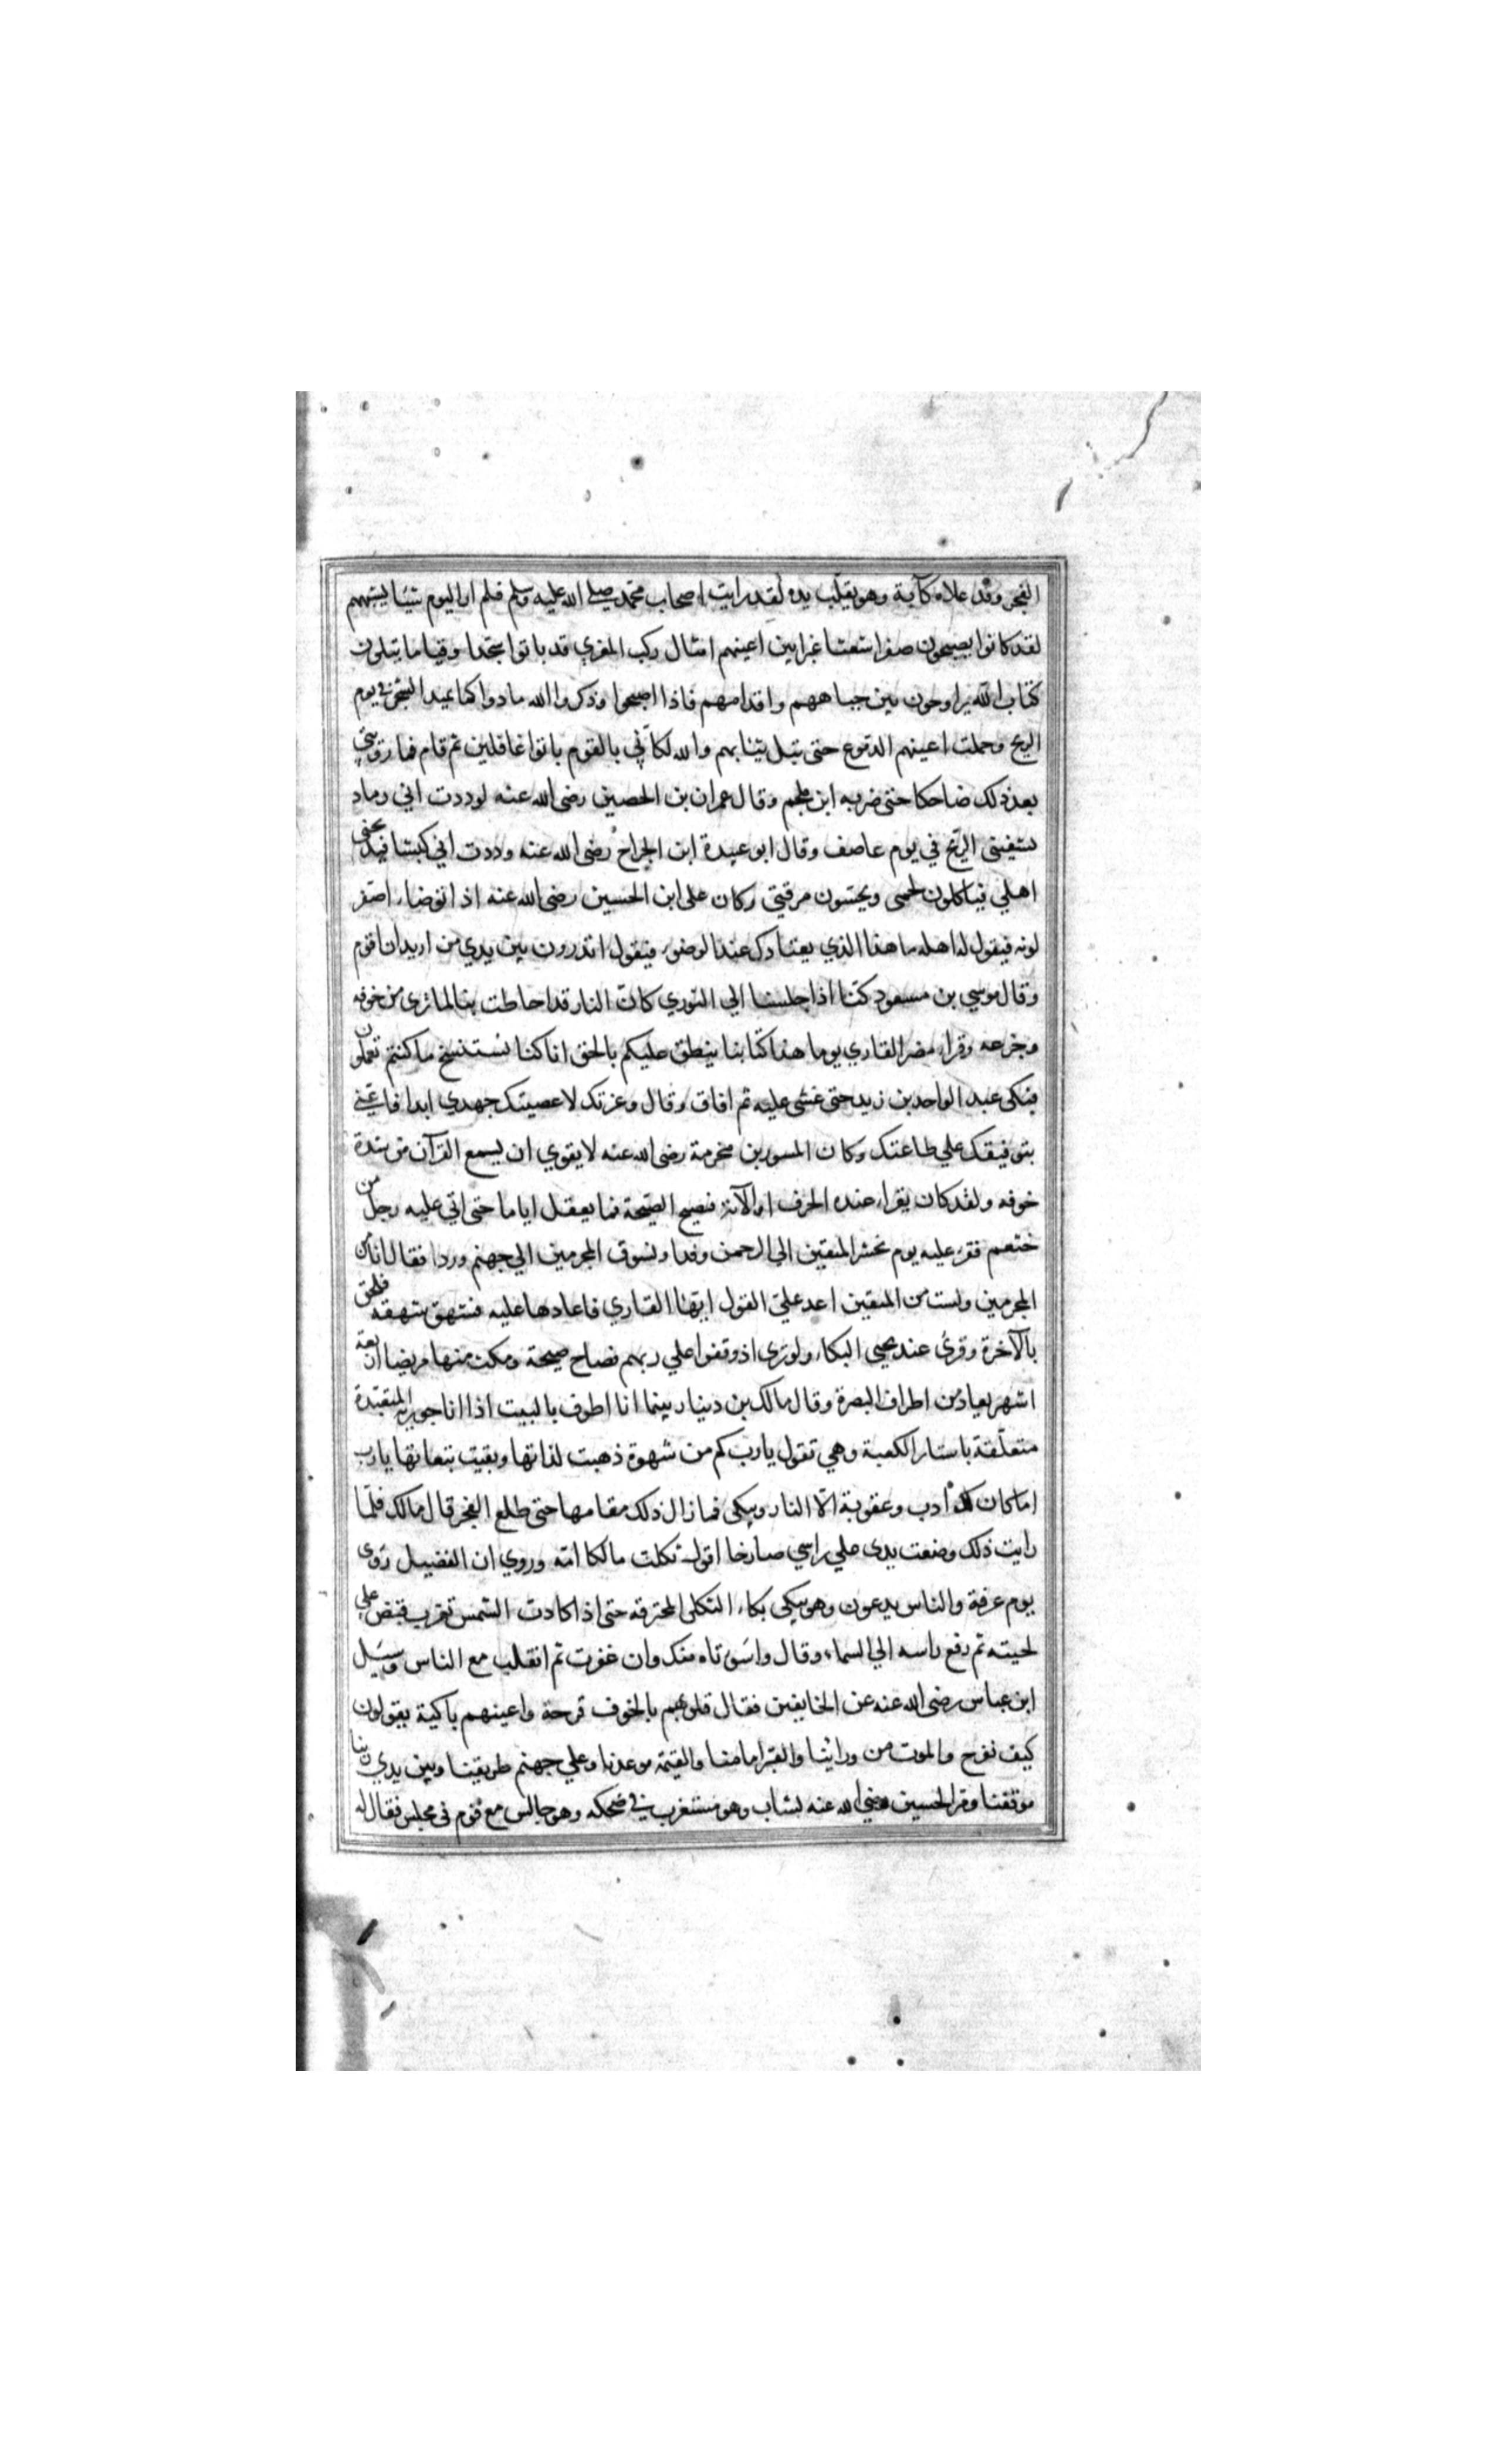 الفجر وقد علاه كآبة وهو يقلب يده لقد رايت اصحاب محمد صلى الله عليه وسلم فلم ار اليوم شيئا يشبههم
لقد كانوا يصبحون صفرا شعثا غبرا بين اعينهم امثال ركب المعزي قد باتوا سجدا وقياما يتلون
كتاب الله يراوحون بين جباههم واقدامهم فاذا اصبحوا وذكروا الله مادوا كما يميد الشجر في يوم
الريح وحملت اعينهم الدموع حتى تبل ثيابهم والله لكاني بالقوم باتوا غافلين ثم قام فما رؤي
بعد ذلك ضاحكا حتى ضربه ابن ملجم وقال عمران بن الحصين رضى الله عنه لوددت اني رماد
الريح في يوم عاصف وقال ابو عبيدة ابن الجراح رضى الله عنه وددت اني كبشا فيذبحنى
اهلي فياكلون لحمى ويحتسون مرقتي وكان على ابن الحسين رضى الله عنه اذا توضاء اصفر
لونه فيقول له اهله ما هذا الذي يعتادك عند الوضوء فيقول اتدرون بين يدي من اريد ان اقوم
وقال موسي بن مسعود كنا اذا جلسنا الي الثوري كان النار قد احاطت بنا لما نرى من خوفه
وجزعه وقراء مضر القاري يوما هذا كتابنا ينطق عليكم بالحق انا كنا نستنسخ ما كنتم تعملون
فبكى عبد الواحد بن زيد حتى غشى عليه ثم افاق وقال وعزتك لا عصيتك جهدي ابدا فاعني
بتوفيقك علي طاعتك وكان المسور بن مخرمة رضى الله عنه لا يقوي ان يسمع القرآن من شدة
خوفه ولقد كان يقراء عنده الحرف او الآية فيصيح الصيحة فما يعقل اياما حتى اتي عليه رجل من
خثعم فقرء عليه يوم نحشر المتقين الي الرحمن وفدا ونسوق المجرمين الي جهنم وردا فقال انا من
المجرمين ولست من المتقين اعد علي القول ايها القاري فاعادها عليه فشهق شهقة فلحق
بالآخرة وقرئ عند يحيى البكاء ولو ترى اذ وقفوا علي ربهم فصاح صيحة ومكث منها مريضا اربعة
اشهر يعاد من اطراف البصرة وقال مالك بن دينار بينما انا اطوف بالبيت اذا انا جويرية المتعبدة
متعلقة باستار الكعبة وهي تقول يارب كم من شهوة ذهبت لذاتها وبقيت تبعاتها يارب
اما كان لك ادب وعقوبة الا النار وتبكى فما زال ذلك مقامها حتى طلع الفجر قال مالك فلما
رايت ذلك وضعت يدى علي راسي صارخا اقول ثكلت مالكا امه وروي ان الفضيل رؤى
يوم عرفة والناس يدعون وهو يبكي بكاء الثكلى المحترقه حتى اذا كادت الشمس تغرب قبض علي
لحيته ثم رفع راسه الي السماء وقال واسوءتاه منك وان غفرت ثم انقلب مع الناس وسيل
ابن عباس رضى الله عنه عن الخايفين فقال قلوبهم بالخوف قرحة واعينهم باكية يقولون
كيف نفرح والموت من ورائنا والقبر امامنا والقيمة موعدنا وعلي جهنم طريقنا وبين يدي ربنا
موقفنا ومر الحسين رضي الله عنه بشاب وهو مستغرب في ضحكه وهو جالس مع قوم في مجلس فقال له